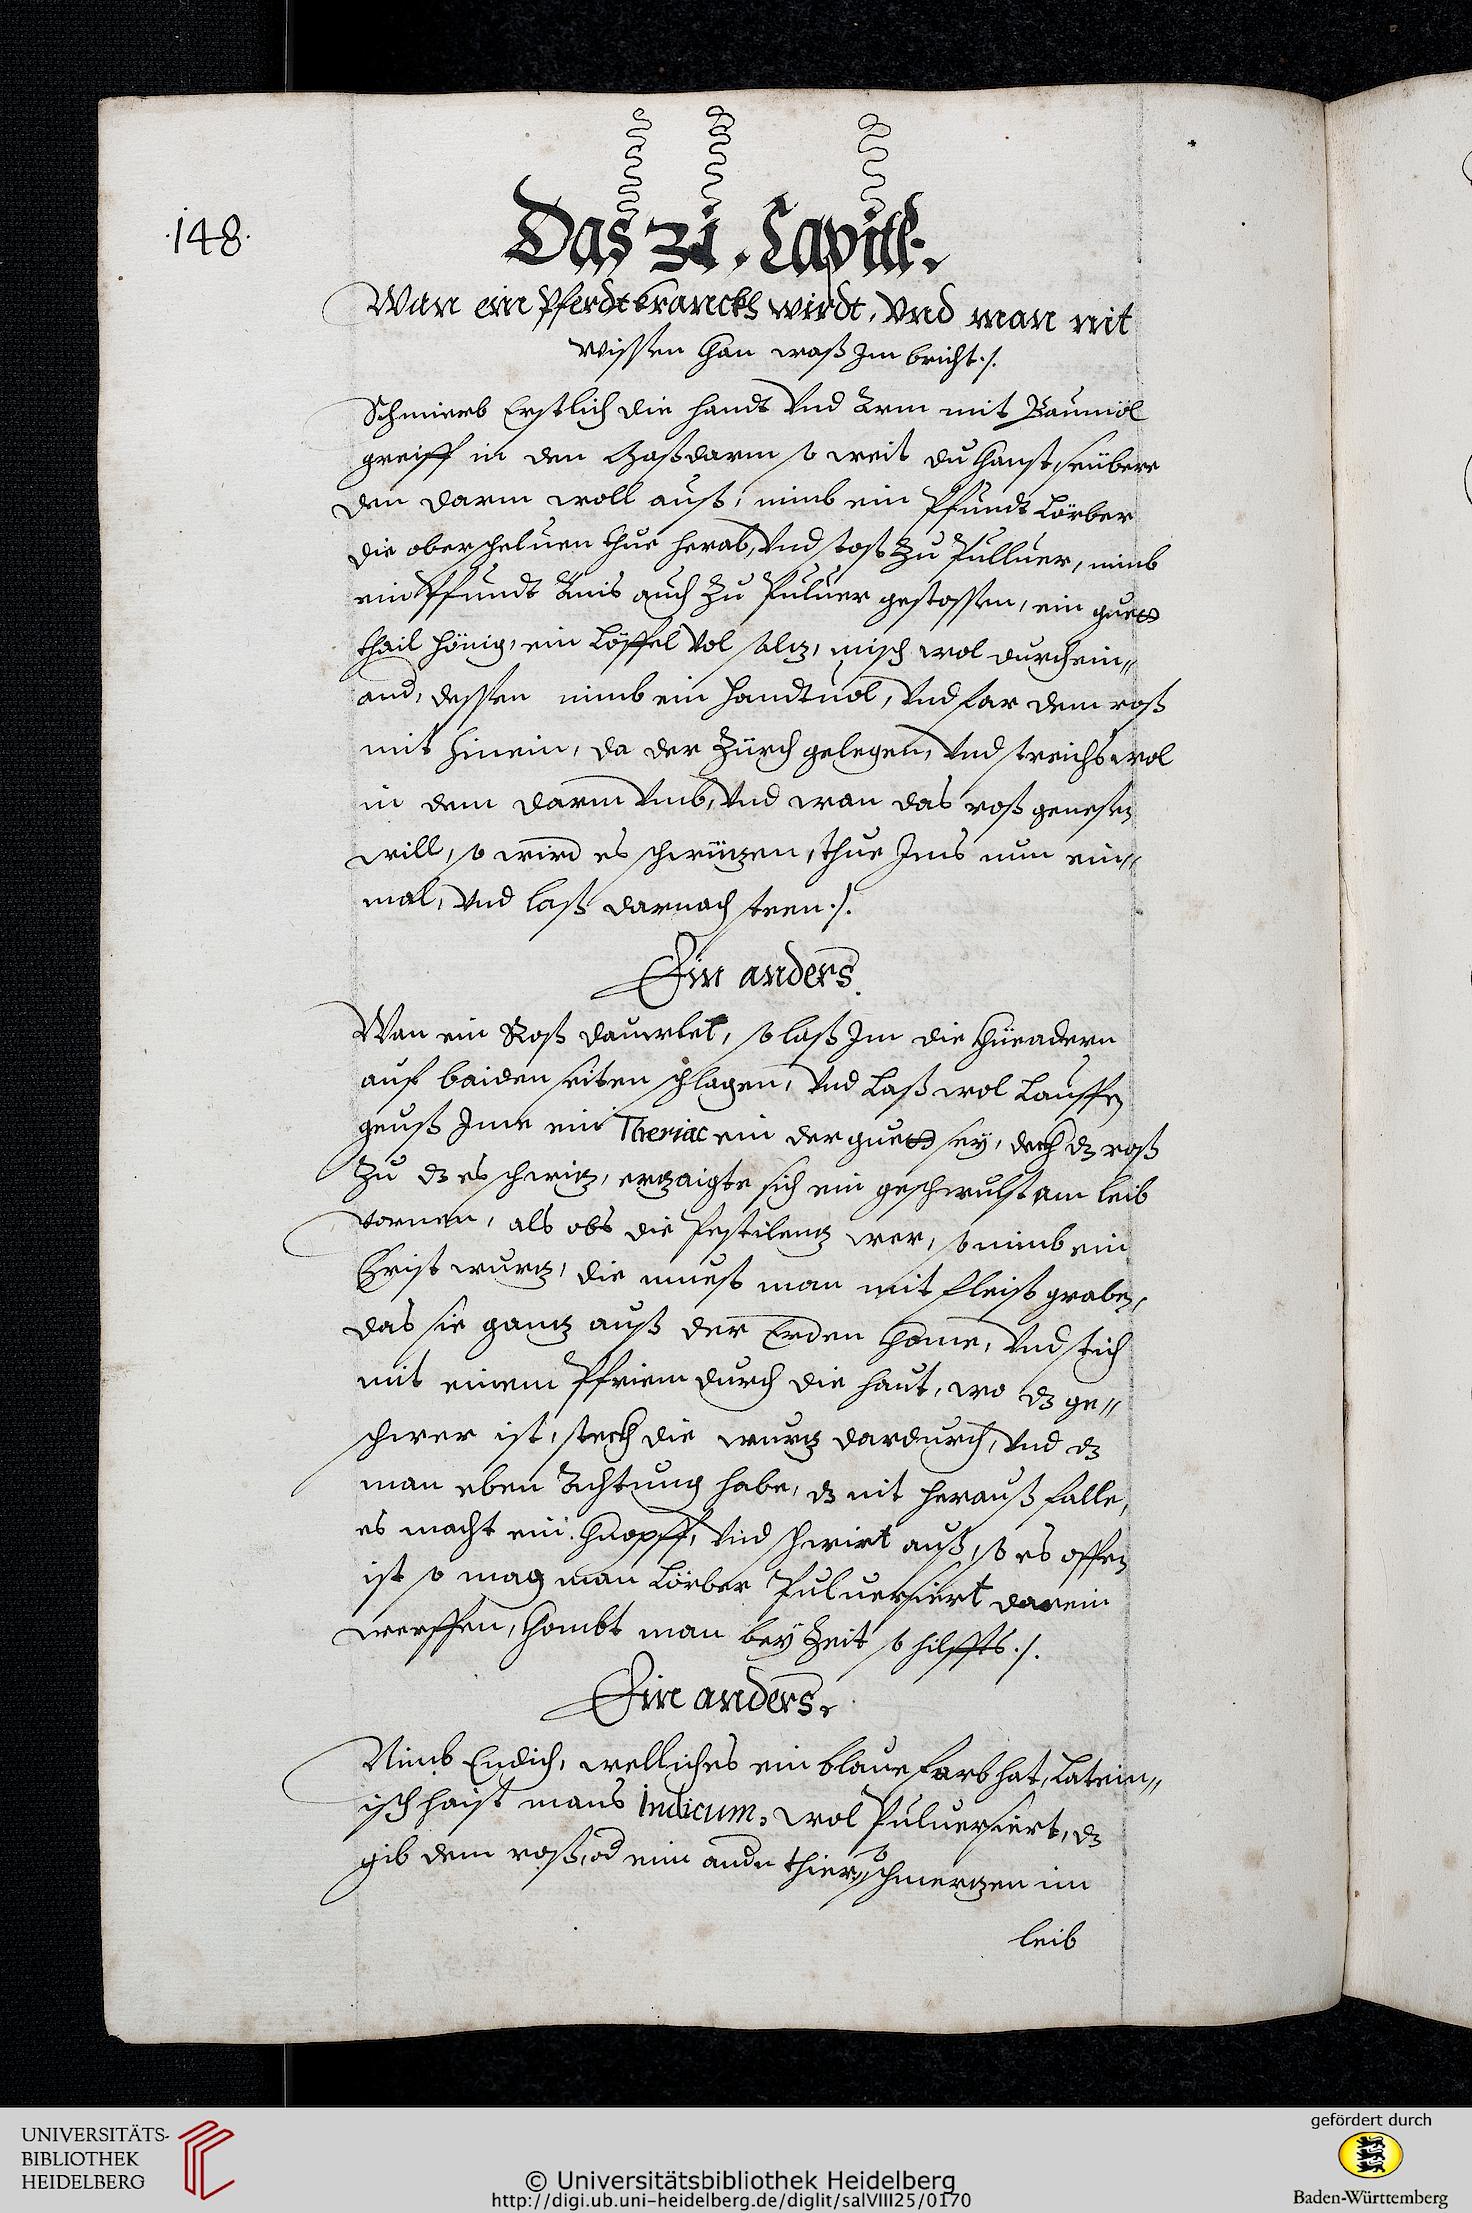 .148.
Das 31. Capitl.
Wan ein Pferdt kranckh wirdt, Vnd man nit
wissen khan waß Jm bricht ./.
Schmierb Erstlich die handt Vnd Arm mit Baumöl
greiff in den Maßdarm so weit du khanst, seübere
den darm woll auß, nimb ein Pfundt Lörber
die oberschelüen thue herab, Vnd stoß Zu Pulluer, nimb
ein Pfundt Änis auch Zu Puluer gestossen, ein guets
thail hönig, ein Löffel Vol saltz, misch wol durchein„
and, dessen nimb ein handtuol, Vnd far dem roß
mit hinein, da der Zürch gelegen, Vnd streichs wol
in dem darm Vmb, Vnd wan das roß genesen
will, so wird es schwitzen, thue Jms nun ein„
mal, Vnd laß darnach steen ./.
Ein anders.
Wan ein Roß daurlet, so laß Jm die
auf baiden seiten schlagen, Vnd Laß wol Lauffen
geuß Jme ein Theriac ein der guets seÿ, deckh dz roß
Zu dz es schwitz, erzaigte sich ein geschwulst am leib
vornen, als obs die Pestilentz wer, so nimb ein
Christwurtz, die muest man mit fleiß graben,
das sie gantz auß der Erden khome, Vnd stich
mit einem Pfriem durch die haut, wo dz ge„
schwer ist, steckh die wurtz dardurch, Vnd dz
man eben Achtung habe, dz nit herauß falle,
es macht ein khnopff, Vnd schwirt auß, so es offen
ist so mag man Lörber Puluersiert darein
werffen, khombt man beÿ Zeit so hilffts ./.
Ein anders.
Nimb Endich, welliches ein blaue farb hat, Latein„
isch haist mans Indicum, wol Puluersiert, dz
gib dem roß, od eim andn thier, schmertzen im
leib
UNIVERSITÄTS-
BIBLIOTHEK
HEIDELBERG
© Universitätsbibliothek Heidelberg
http://digi.ub.uni-heidelberg.de/diglit/salVIII25/0170
gefördert durch
Baden-Württemberg